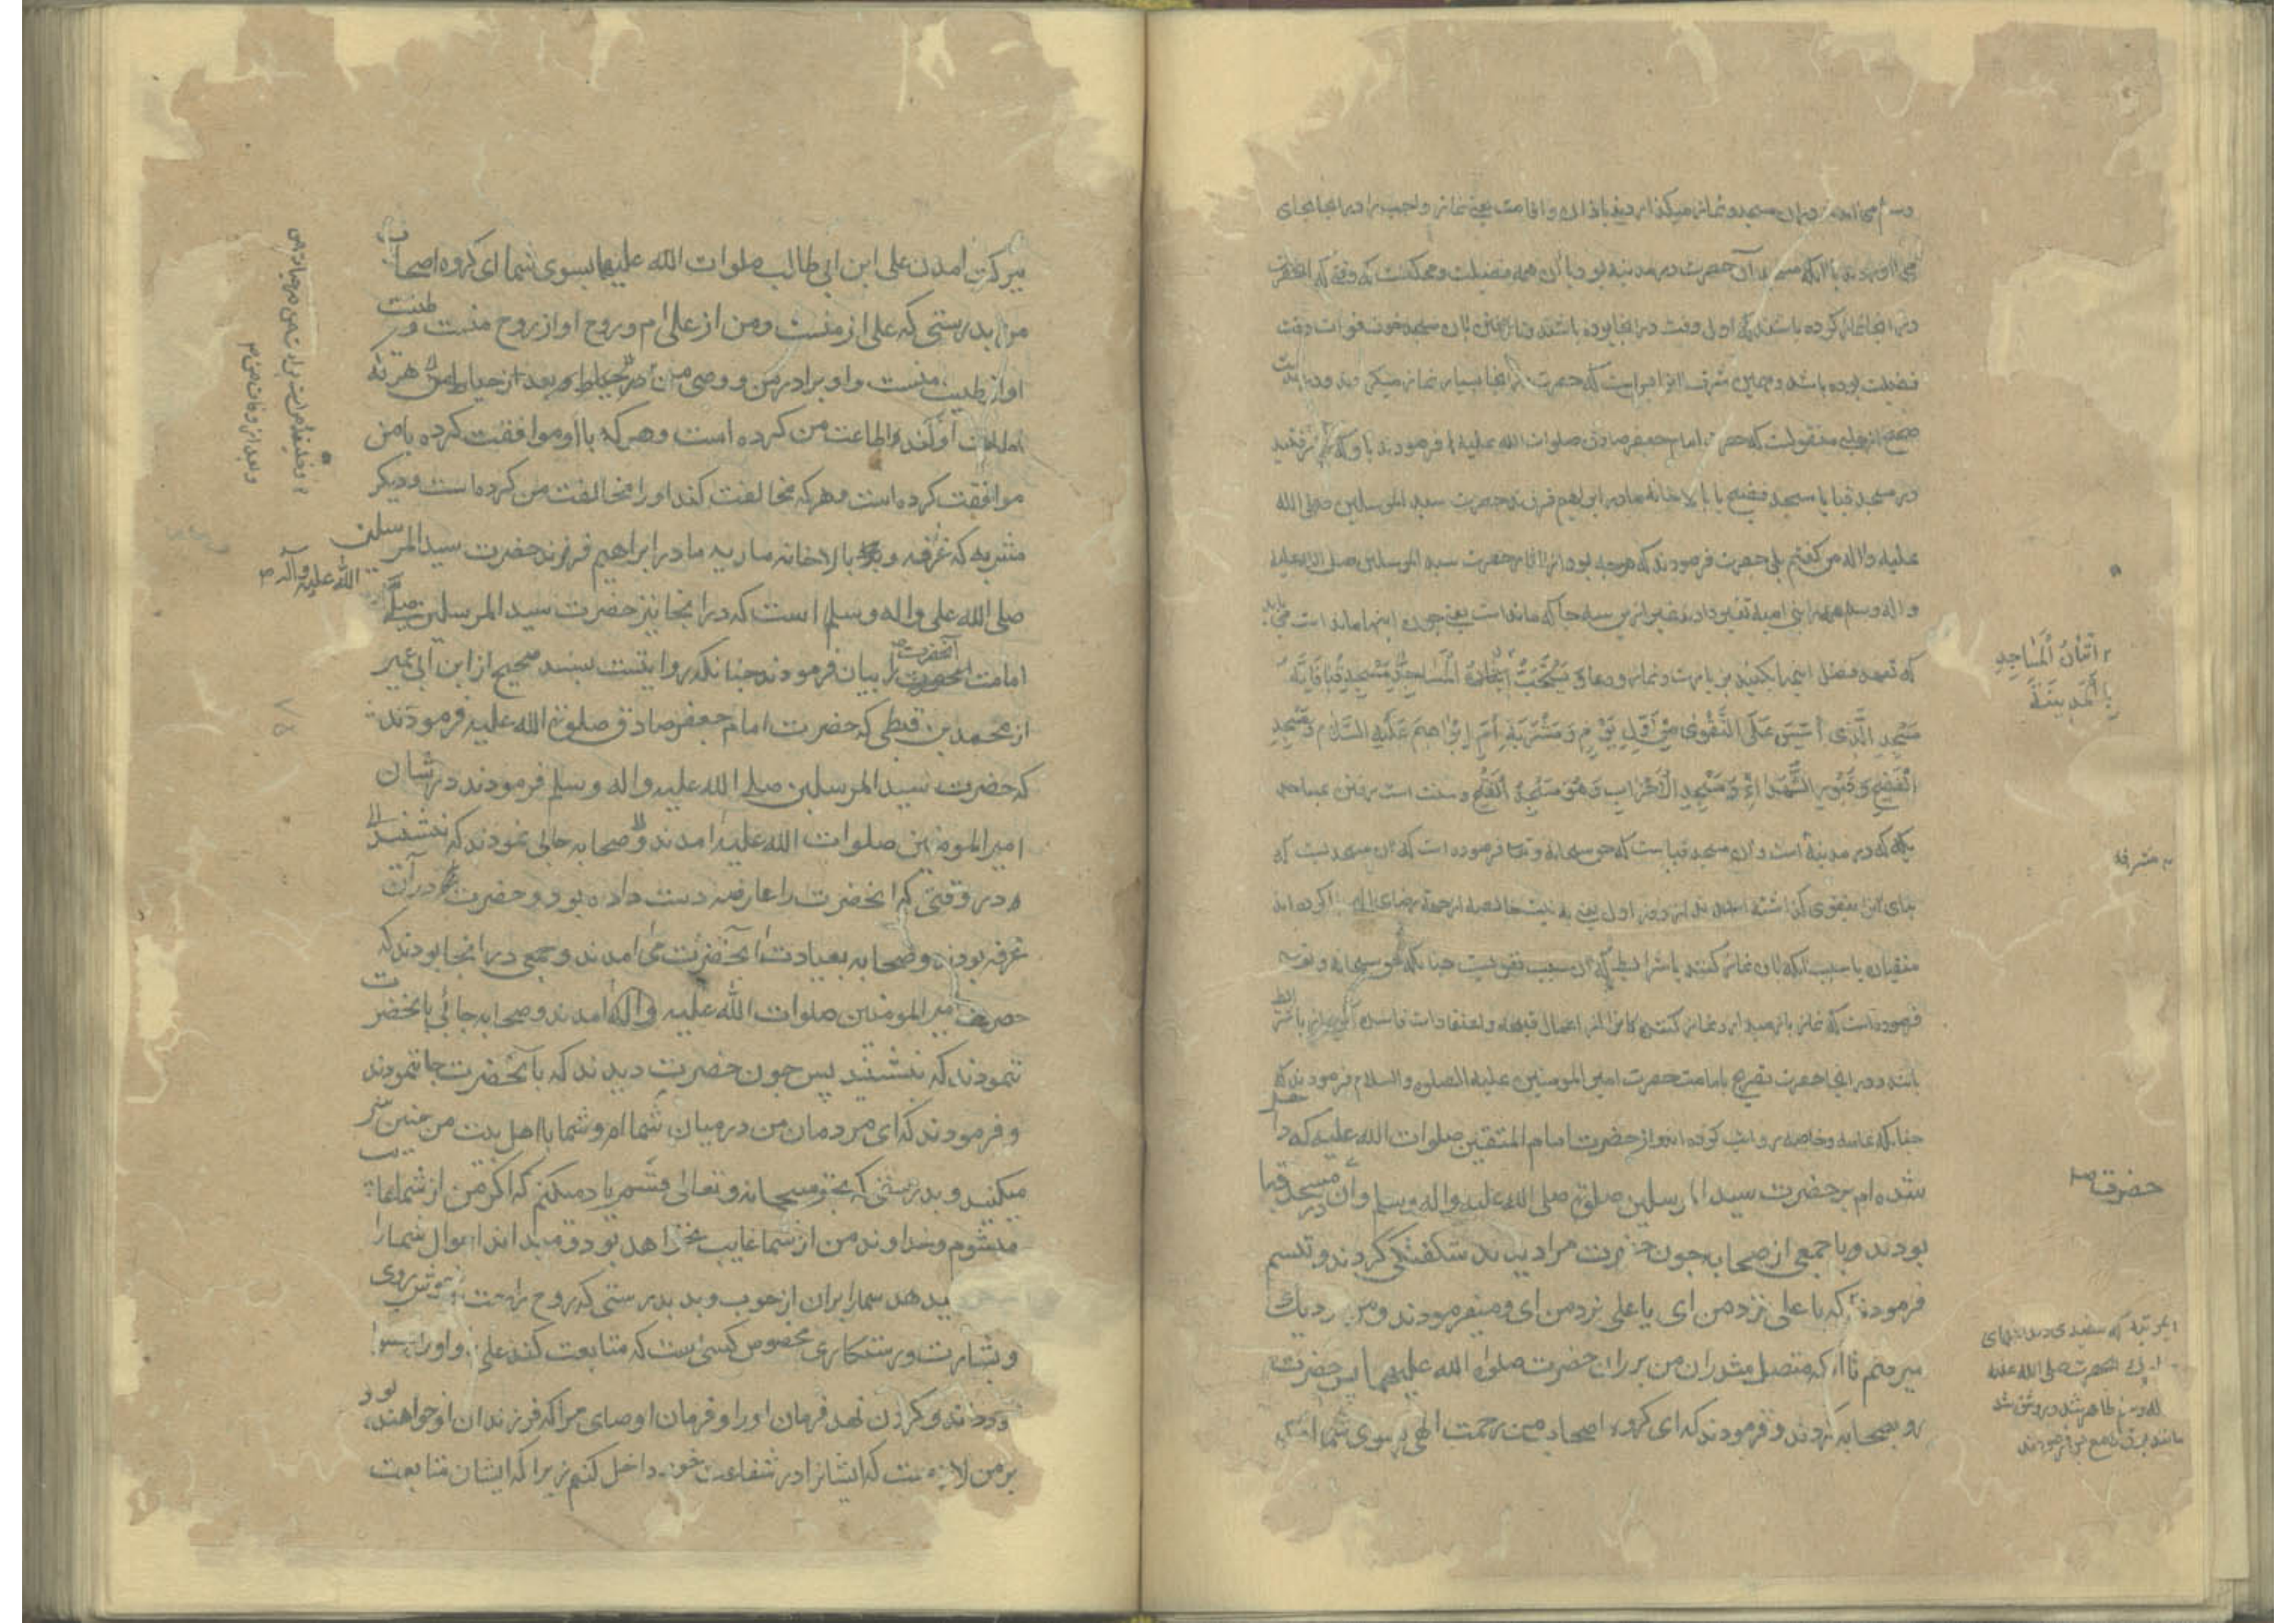 وسلم می‌آمدند در آن مسجد و نماز میکذاردند باذان و اقامت یعنی نماز واجب را در انجا بجای
می‌اوردند با انکه مسجد آن حضرت در مدینه بود با آن همه فضیلت و ممکنست که وقتی که انحضرت
در انجا نماز کرده باشند که اول وقت در انجا بوده باشند و تا رفتن بان مسجد خوف فوات وقت
فضیلت بوده باشد و همین شرف انرا بس است که حضرت در انجا بسیار نماز میکردند و در
صحیح از حلبی منقولست که حضرت امام جعفر صادق صلوات الله علیه فرمودند باو که رفتید
در مسجد قبا یا مسجد فضیخ یا بالاخانه مادر ابراهیم فرزند حضرت سید المرسلین صلی الله
علیه واله من کفتم بلی حضرت فرمودند که هر چه بود از اثار حضرت سید المرسلین صلی الله علیه
واله وسلم همه را بنی امیه تغییر دادند غیر از این سه جا که مانده است یعنی چون اینها مانده است می باید
که تعهد فضل اینها بکنید بزیارت و نماز و دعا وَ يُسْتَحَبُّ اِتْيَانُ الْمَسَاجِدِ بِالْمَدِينَةِ مَسْجِدِ قُبَا فَاِنَّهُ
مَسْجِدُ الَّذِي اُسِّسَ عَلَى التَّقْوٰى مِنْ اَوَّلِ يَوْمٍ وَ مَشْرَبَةِ اُمِّ اِبْرٰاهِيمَ عَلَيْهِ السَّلَام وَ مَسْجِدِ
الْفَضِيخِ وَ قُبُورِ الشُّهَدٰاءِ وَ مَسْجِدِ الْاَحْزَابِ وَ هُوَ مَسْجِدُ الْفَتْحِ و سنت است رفتن بمساجد
که در مدینه است و آن مسجد قباست که حق سبحانه و تعالی فرموده است که آن مسجدیست که
بنای آنرا بتقوی کذاشته اند از روز اول یعنی به نیت خالصه از جهة رضای الهی کرده اند
متقیان یا سبب آنکه بان نماز کنند با شرایط که آن سبب تقوی است چنانکه حق سبحانه و تعالی
فرموده است که نماز باز میدارد نماز کننده را از اعمال قبیحه و اعتقادات فاسده
باشد و در انجا حضرت تصریح بامامت حضرت امیر المومنین علیه الصلوه والسلام فرمودند
چنانکه عامه و خاصه روایت کرده اند از حضرت امام المتقین صلوات الله علیه که داخل
شده ام بر حضرت سید المرسلین صلی الله علیه واله وسلم و آن حضرت در مسجد قبا
بودند و با جمعی از صحابه چون حضرت مرا دیدند شکفتکی کردند و تبسم
فرمودند که یا علی نزد من ای یا علی نزد من ای و میفرمودند و من نزدیک
میرفتم تا انکه متصل شد ران من بر ران حضرت صلوات الله علیهما پس حضرت
رو بصحابه کردند و فرمودند که ای کروه اصحاب من رحمت الهی بسوی شما
اِتْيَانُ الْمَسَاجِدِ
بِالْمَدِينَةِ
مشرفه
حضرت
بمرتبه که سفیدی دندانهای
مبارک انحضرت صلی الله علیه
واله وسلم ظاهر شد و روشن شد
مانند برق و میفرمودند
برکت آمدن علی ابن ابی طالب صلوات الله علیهما بسوی شما ای کروه اصحاب
من بدرستی که علی از منست و من از علی ام و روح او از روح منست و طینت
او از طینت منست و او برادر من و وصی من در حیات و بعد از حیات من هر که
اطاعت او کند اطاعت من کرده است و هر که با او موافقت کرده با من
موافقت کرده است و هر که مخالفت کند او را مخالفت من کرده است و دیکر
مشربه که غرفه و بالاخانه ماریه مادر ابراهیم فرزند حضرت سید المرسلین
صلی الله علیه واله وسلم است که در انجا نیز حضرت سید المرسلین صلی الله علیه وآله
امامت انحضرت را بیان فرمودند چنانکه روایتست بسند صحیح از ابن ابی عمیر
از محمد بن قبطی که حضرت امام جعفر صادق صلوات الله علیه فرمودند
که حضرت سید المرسلین صلی الله علیه واله وسلم فرمودند در شان
امیر المومنین صلوات الله علیه امدند و صحابه جائی ننمودند که بنشینند
در وقتی که انحضرت را عارضه دست داده بود و حضرت در آن
غرفه بودند و صحابه بعیادت آنحضرت می امدند و جمعی در انجا بودند که
حضرت امیر المومنین صلوات الله علیه واله امدند و صحابه جائی بانحضرت
ننمودند که بنشینند پس چون حضرت دیدند که بانحضرت جا ننمودند
و فرمودند که ای مردمان من در میان شما ام و شما با اهل بیت من چنین
میکنید و بدرستی که بحق سبحانه و تعالی قسم یاد میکنم که اکر من از شما غایب
میشوم خداوند من از شما غایب نخواهد بود و میداند احوال شما را
میدهد شما را بران از خوب و بد بدرستی که روح و راحت و خوش روی
و بشارت و رستکاری مخصوص کسی است که متابعت کند علی را و او را
و کردن نهد فرمان او را و فرمان اوصیای مرا که فرزندان او خواهند بود
بر من لازمست که ایشانرا در شفاعت خود داخل کنم زیرا که ایشان متابعت